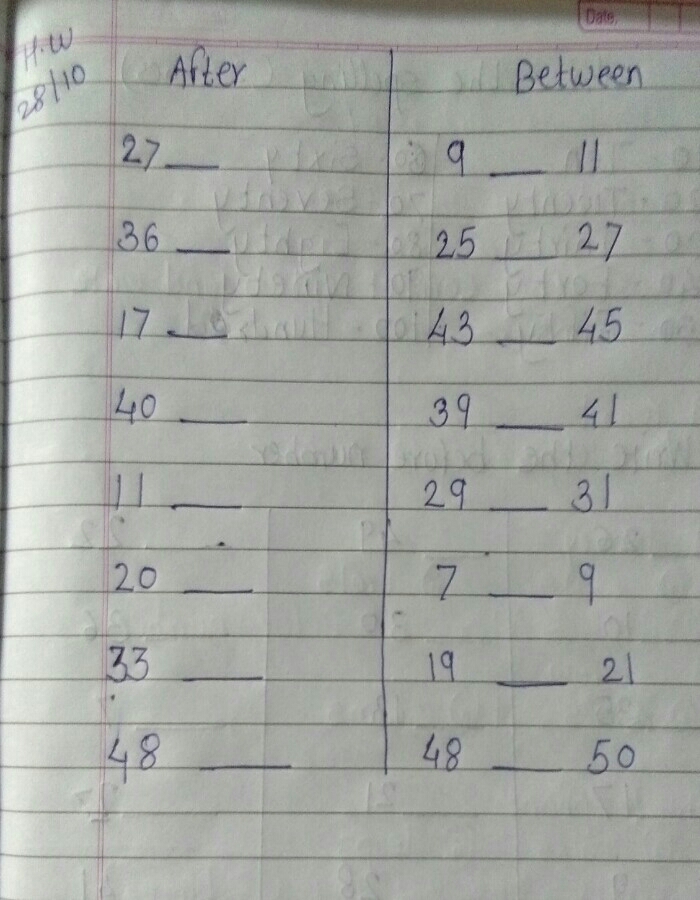 Date.
H.W
28/10
After Between
27 __ 9 __ 11
36 __ 25 __ 27
17 __ 43 __ 45
40 __ 39 __ 41
11 __ 29 __ 31
20 __ 7 __ 9
33 __ 19 __ 21
48 __ 48 __ 50